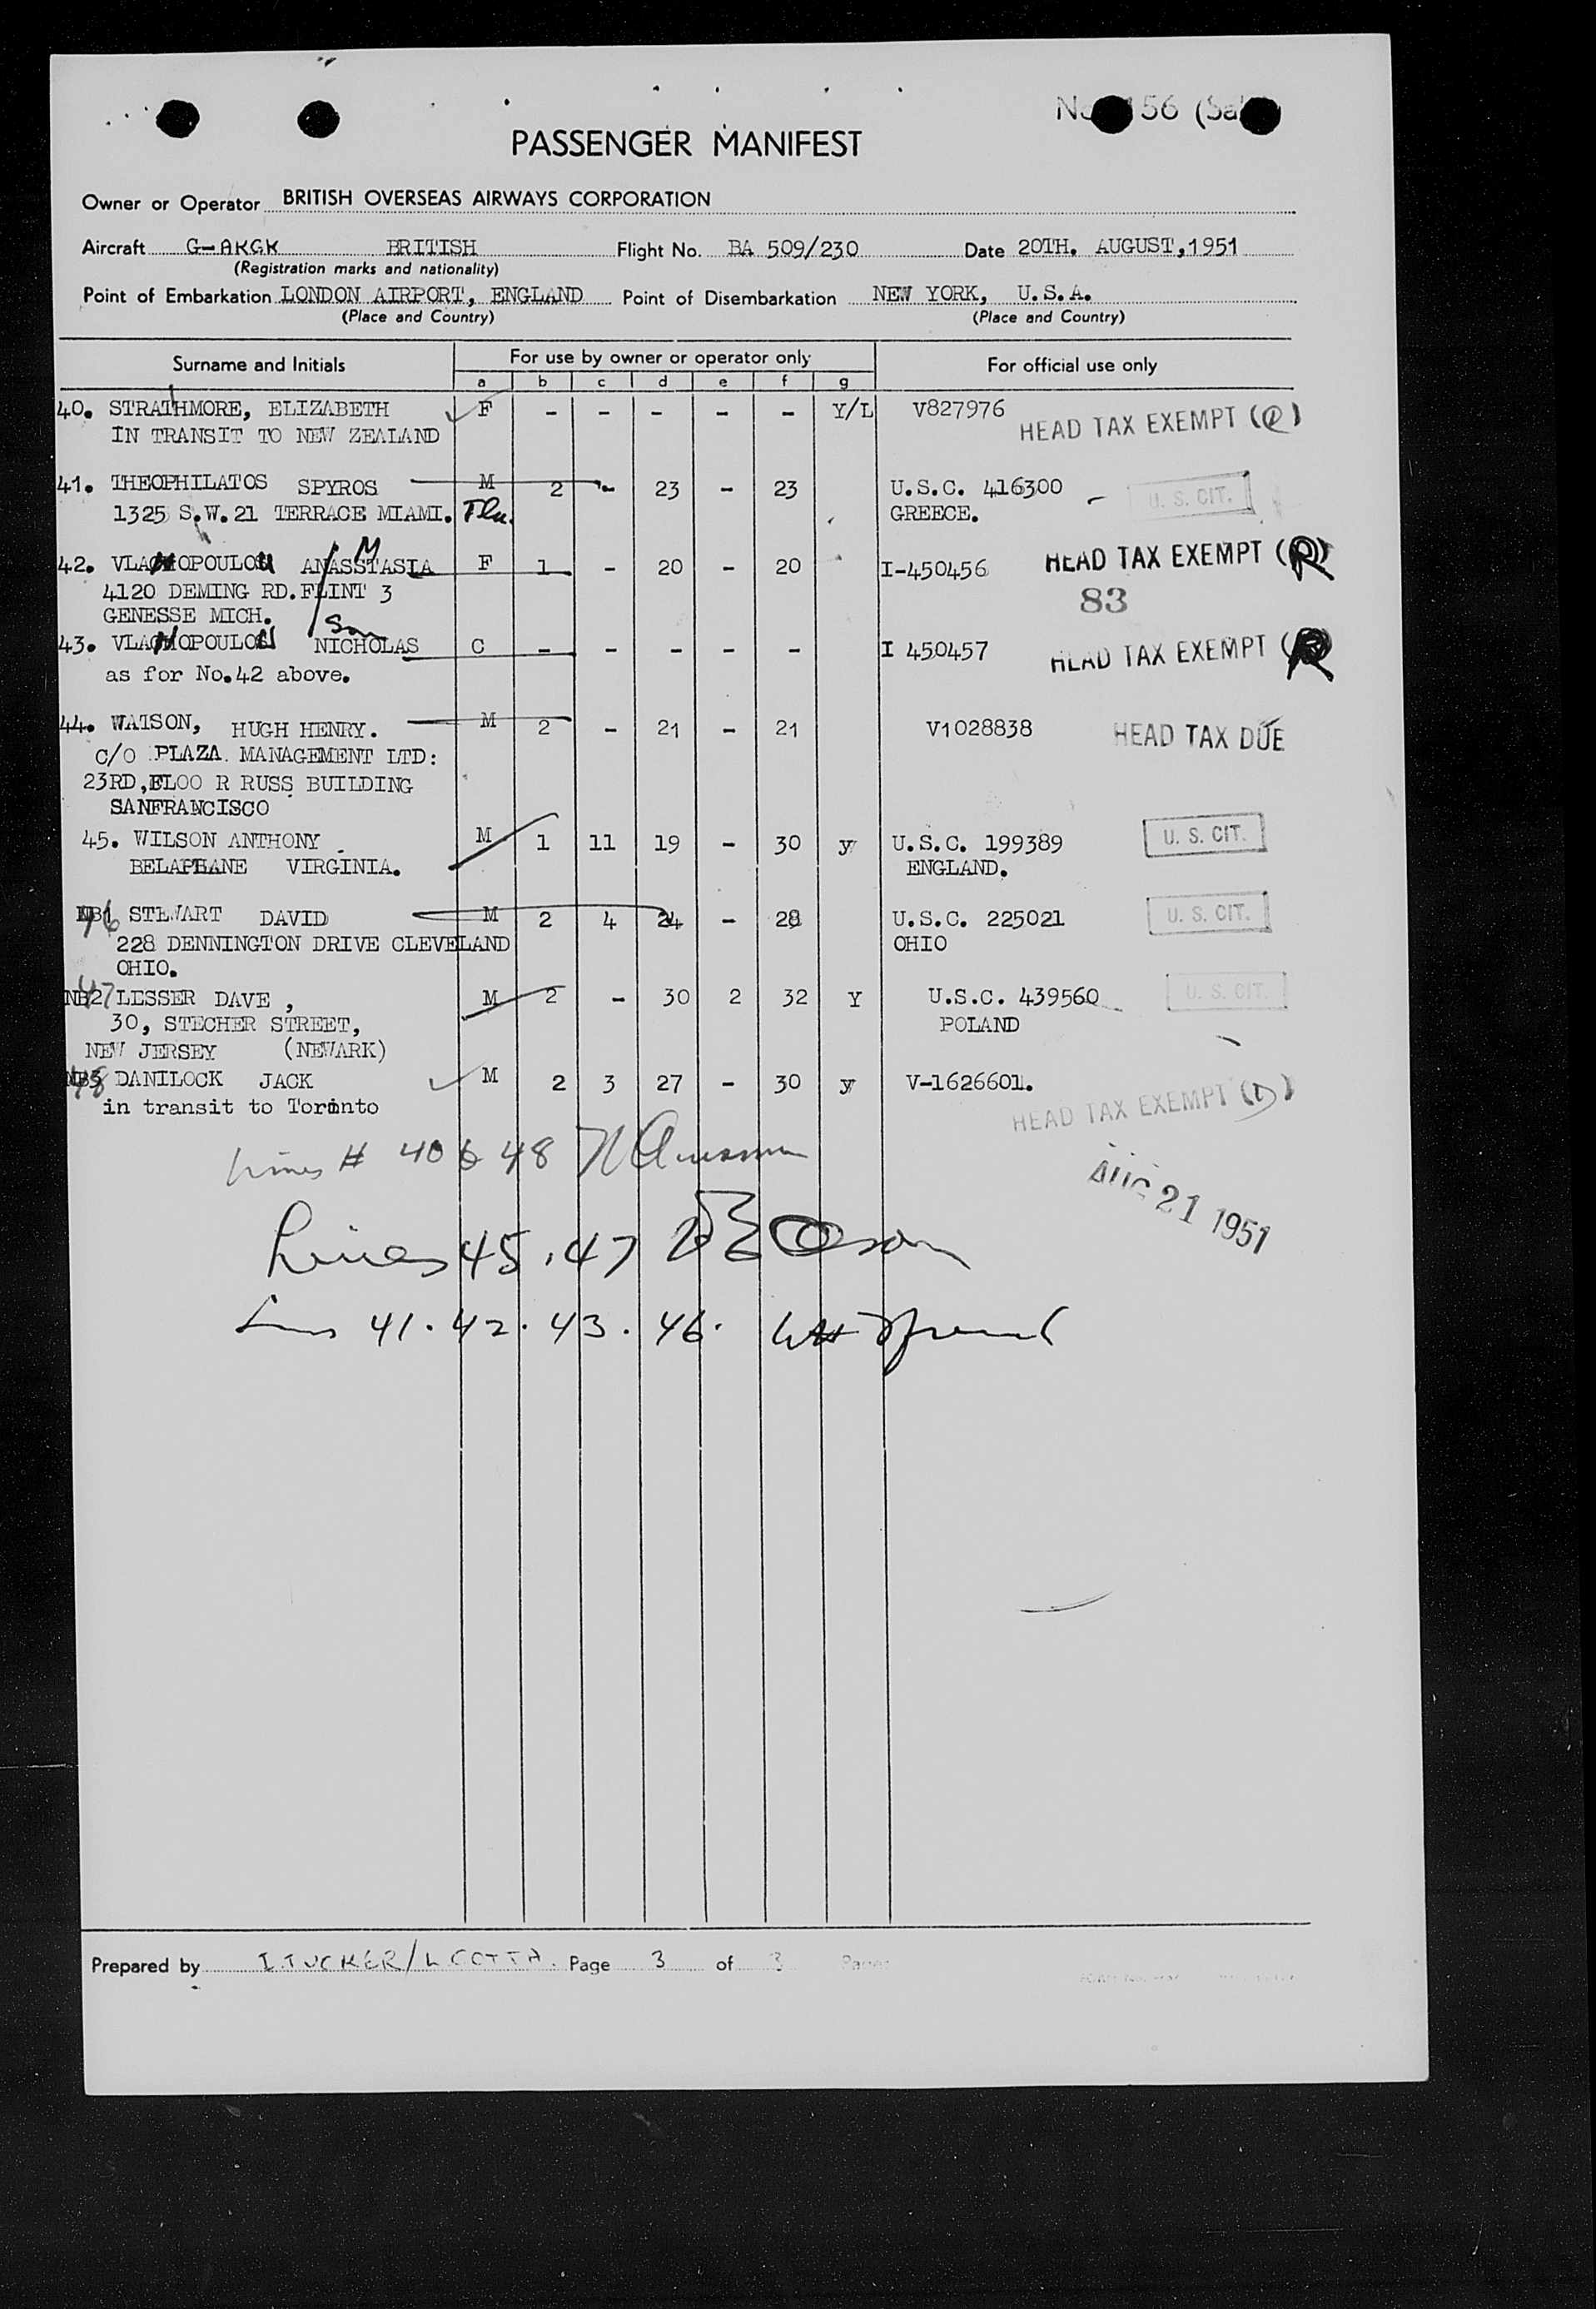 PASSENGER MANIFEST
Owner or Operator BRITISH OVERSEAS AIRWAYS CORPORATION
Aircraft G-AKGK BRITISH Flight No. BA 509/230 Date 20TH. AUGUST, 1951
(Registration marks and nationality)
Point of Embarkation LONDON AIRPORT, ENGLAND Point of Disembarkation NEW YORK, U.S.A.
(Place and Country) (Place and Country)
Surname and Initials For use by owner or operator only For official use only
a b c d e f g
40. STRATHMORE, ELIZABETH F - - - - - Y/L V827976 HEAD TAX EXEMPT
IN TRANSIT TO NEW ZEALAND
41. THEOPHILATOS SPYROS M 2 - 23 - 23 U.S.C. 416300 U. S. CIT.
1325 S.W. 21 TERRACE MIAMI. Fla. GREECE.
42. ANASSTASIA M F 1 - 20 - 20 I-450456 HEAD TAX EXEMPT (R)
4120 DEMING RD. FLINT 3 83
GENESSE MICH.
43. NICHOLAS Son C - - - - - I 450457 HEAD TAX EXEMPT
as for No.42 above.
44. WATSON, HUGH HENRY. M 2 - 21 - 21 V1028838 HEAD TAX DUE
C/O PLAZA MANAGEMENT LTD:
23RD, FLOO R RUSS BUILDING
SANFRANCISCO
45. WILSON ANTHONY M 1 11 19 - 30 y U.S.C. 199389 U. S. CIT.
VIRGINIA. ENGLAND.
46 STEWART DAVID M 2 4 24 - 28 U.S.C. 225021 U. S. CIT.
228 DENNINGTON DRIVE CLEVELAND OHIO
OHIO.
NB2 47 LESSER DAVE, M 2 - 30 2 32 Y U.S.C. 439560 U. S. CIT.
30, STECHER STREET, POLAND
NEW JERSEY (NEWARK)
NB3 48 DANILOCK JACK M 2 3 27 - 30 y V-1626601.
in transit to Toronto HEAD TAX EXEMPT
Lines # 40 & 48
AUG 21 1951
Lines 45, 47
Lines 41. 42. 43. 46.
Prepared by I.TUCKER/ Page 3 of 3